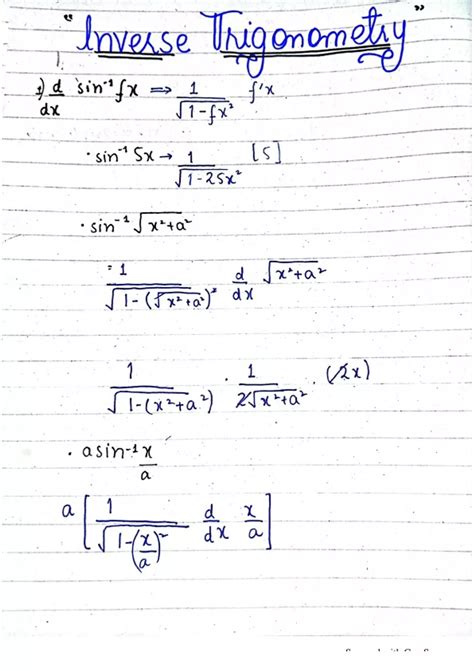 "Inverse Trigonometry"
1) d/dx sin⁻¹fx ⇒ 1/√1-fx² f'x
· sin⁻¹ 5x → 1/√1-25x² [5]
· sin⁻¹ √x²+a²
= 1/√1-(√x²+a²)² d/dx √x²+a²
1/√1-(x²+a²) · 1/2√x²+a² · (2x)
· a sin⁻¹ x/a
a [1/√1-(x/a)² d/dx x/a]